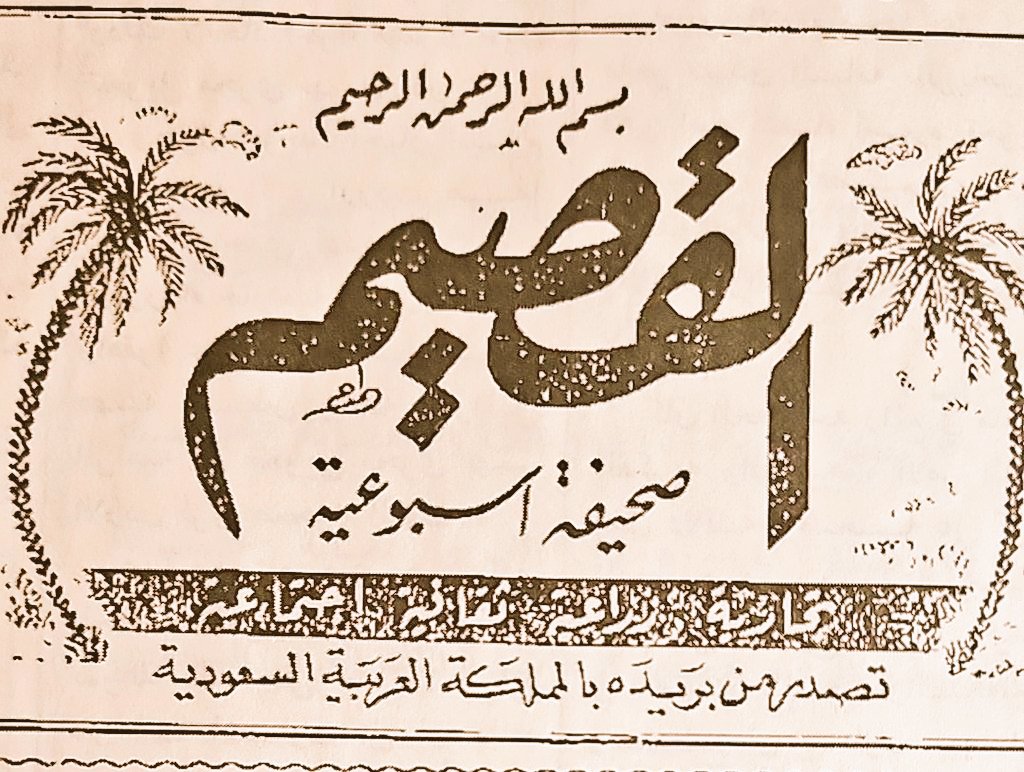 بسم الله الرحمن الرحيم
القصيم
صحيفة اسبوعية
تجارية زراعية ثقافية اجتماعية
تصدر من بريَدَه بالمملَكة العَربَيَة السعودية